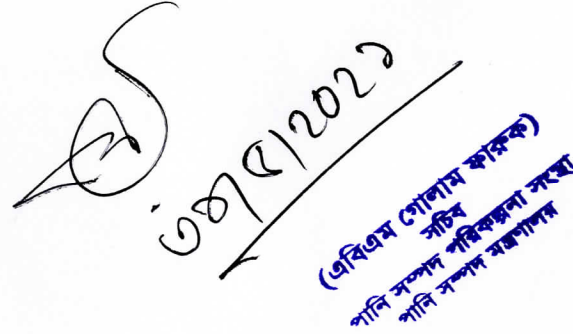 (এবিএম গোলাম ফারুক)
সচিব
পানি সম্পদ পরিকল্পনা সংস্থা
পানি সম্পদ মন্ত্রণালয়